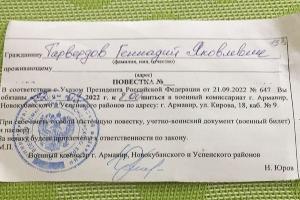 Гражданину Гарвардов Геннадий Яковлевич
(фамилия, имя, отчество)
проживающему
(адрес)
ПОВЕСТКА №
В соответствии с Указом Президента Российской Федерации от 21.09.2022 № 647 Вы
обязаны 2022 г. к 8 00 явиться в военный комиссариат г. Армавир,
Новокубанского и Успенского районов по адресу: г. Армавир, ул. Кирова, 18, каб. № 9.
При себе иметь настоящую повестку, учетно-воинский документ (военный билет)
и паспорт
За неявку будете привлечены к ответственности по закону.
М.П.
Военный комиссар г. Армавир, Новокубанского и Успенского районов
Н. Юров